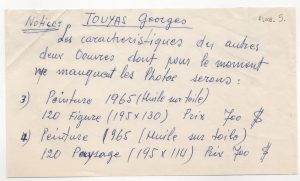 Notice: JOUYAS Georges
Les caracteristiques des autres
deux Oeuvres dont pour le moment
me manquent les Photos serons:
3) Peinture 1965 (Huile sur toile)
120 Figure (195x130) Prix 700 $
4) Peinture 1965 (Huile sur toile)
120 Paysage (195x114) Prix 700 $